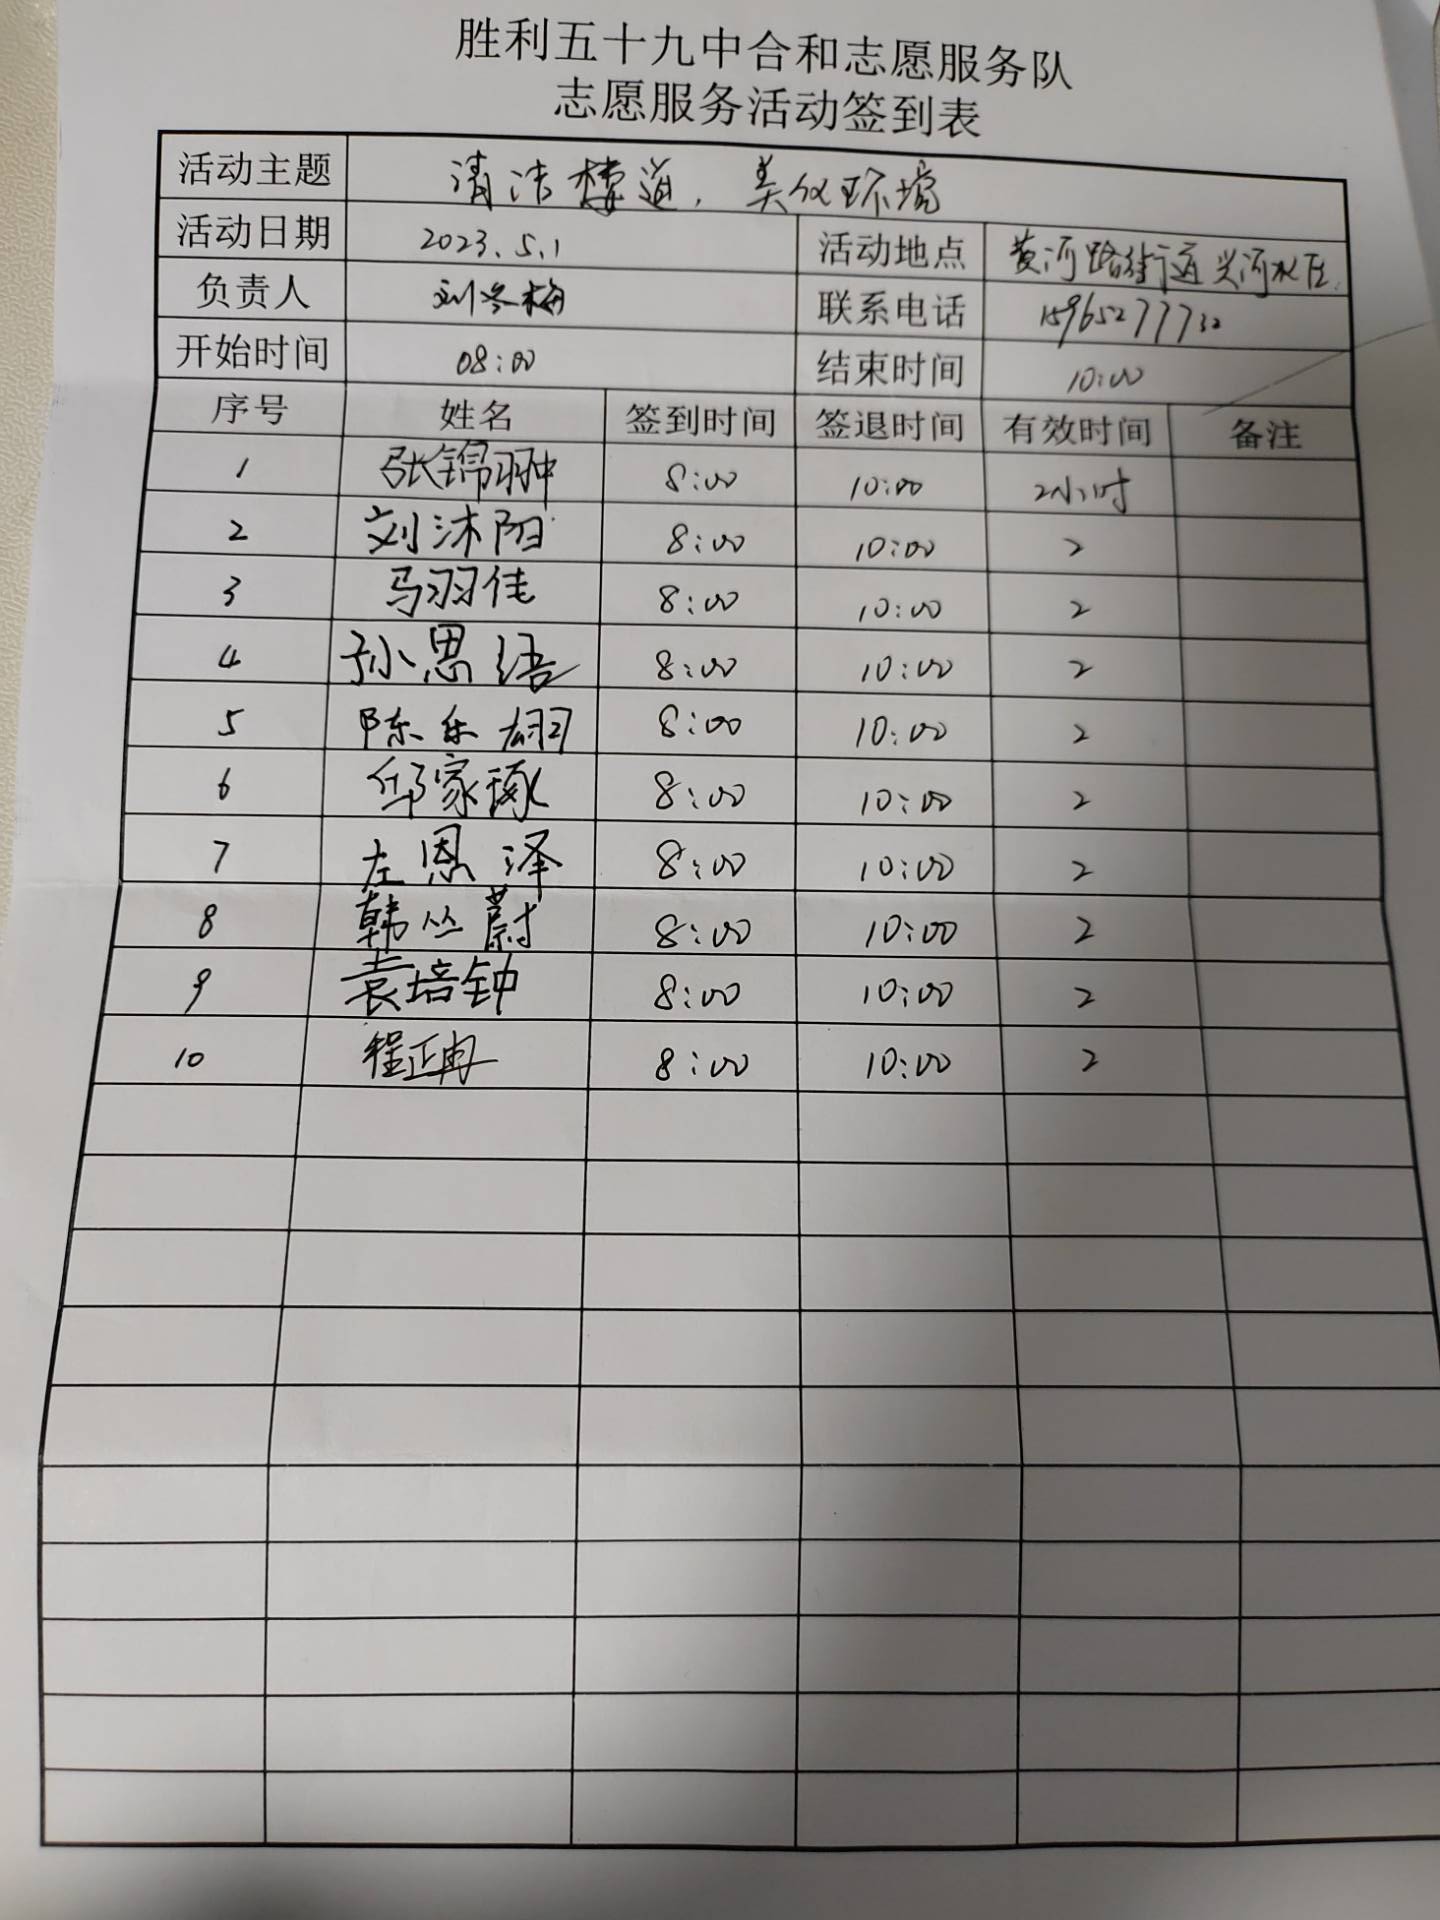 胜利五十九中合和志愿服务队
志愿服务活动签到表
活动主题 清洁楼道，美化环境
活动日期 2023.5.1 活动地点 黄河路街道兴河水区
负责人 刘冬梅 联系电话 15965277732
开始时间 08:00 结束时间 10:00
序号 姓名 签到时间 签退时间 有效时间 备注
1 张锦翀 8:00 10:00 2小时
2 刘沐阳 8:00 10:00 2
3 马羽佳 8:00 10:00 2
4 孙思语 8:00 10:00 2
5 陈乐翃 8:00 10:00 2
6 邱家琢 8:00 10:00 2
7 左恩泽 8:00 10:00 2
8 韩丛蔚 8:00 10:00 2
9 袁培钟 8:00 10:00 2
10 程正冉 8:00 10:00 2